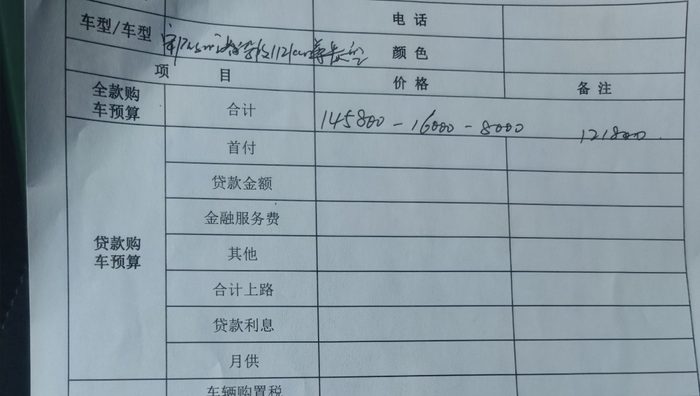 电话
车型/车型
颜色
项目 价格 备注
全款购车预算 合计 145800-16000-8000 121800
贷款购车预算 首付
贷款金额
金融服务费
其他
合计上路
贷款利息
月供
车辆购置税